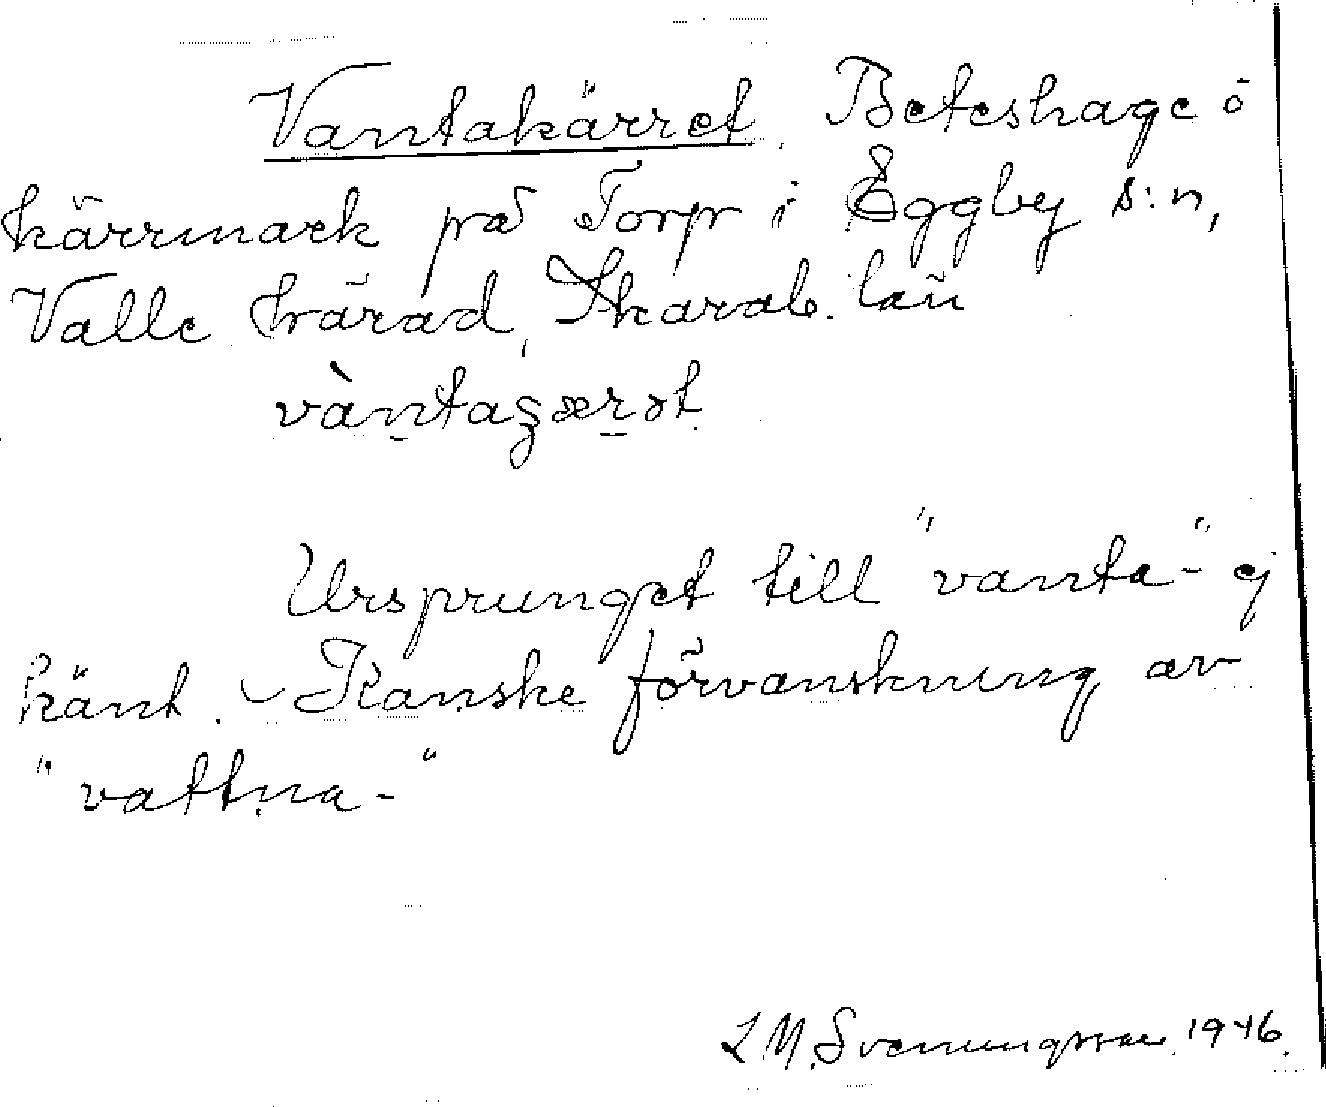 Vantakärret. Beteshage o
kärrmark på Torp i Eggby s:n,
Valle härad, Skarab. län
vàntaʒærət
Ursprunget till "vanta-" ej
känt. - Kanske förvanskning av
"vattna-"
L M. Svenungsson 1946.